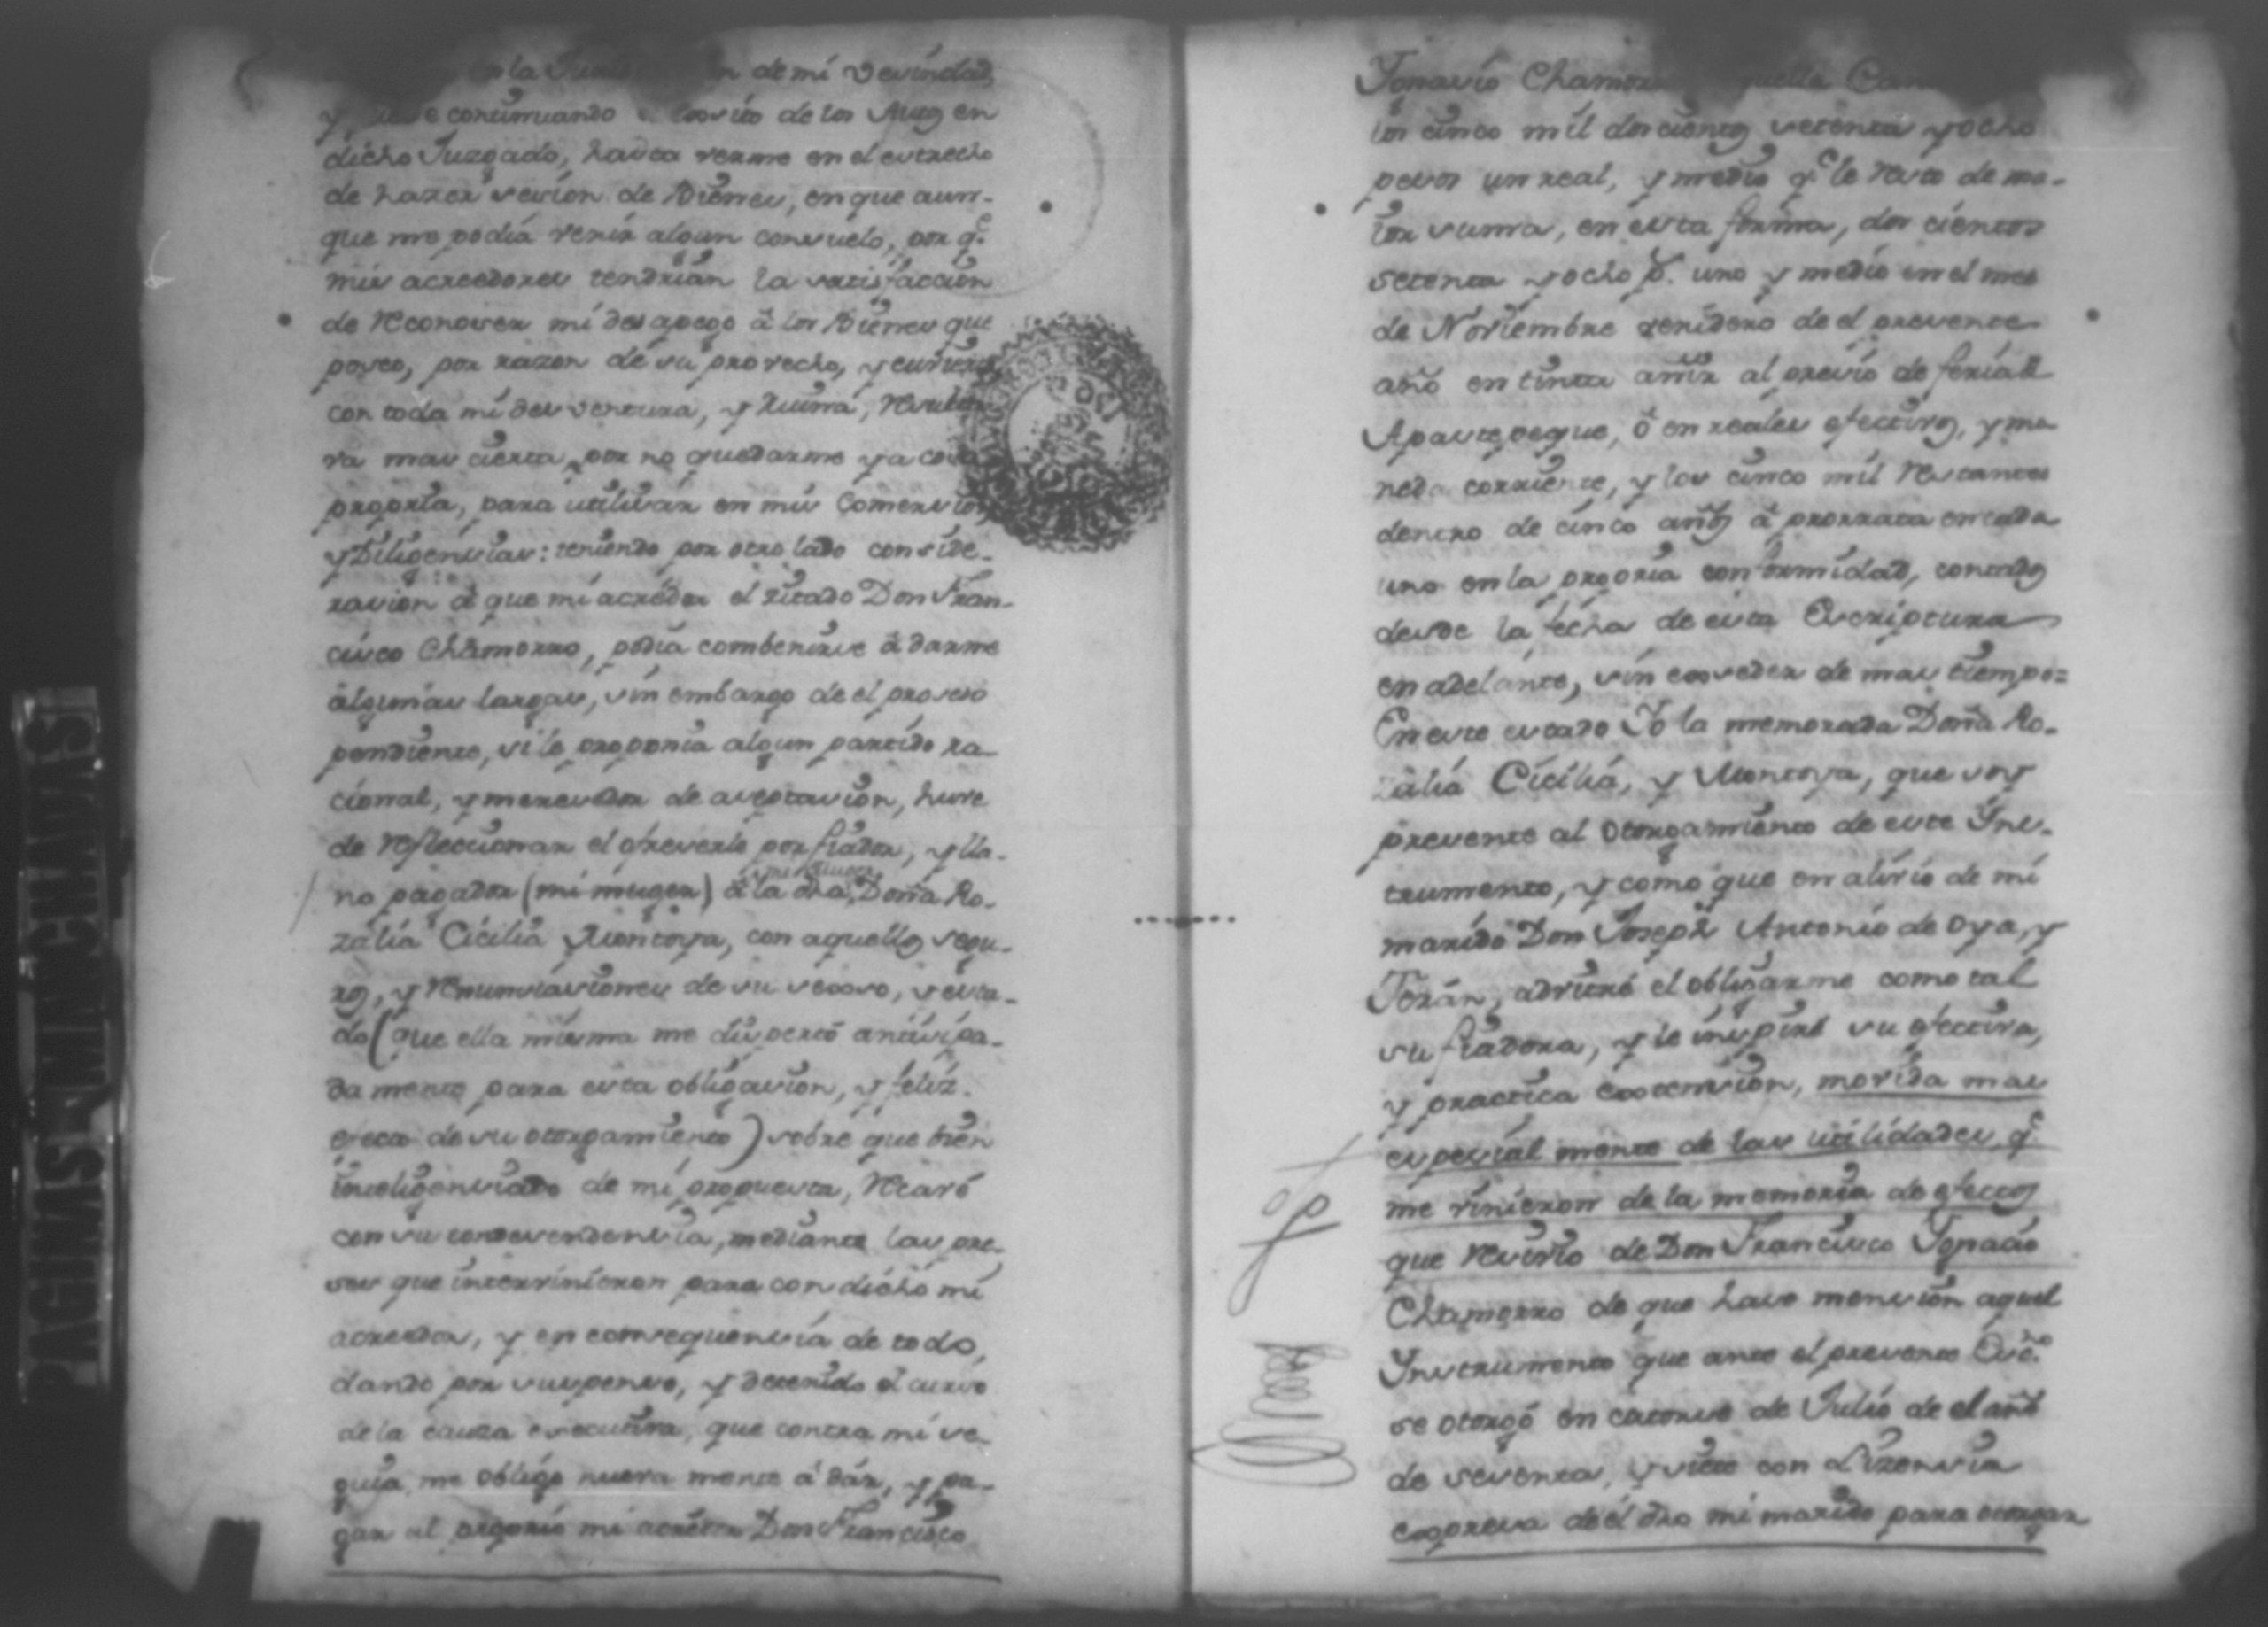 en la de mi Vecindad,
y continuando el de los Autos en
dicho Juzgado, hasta verme en el estrecho
de hazer sesion de Bienes, en que aun-
que me podia venir algun consuelo, por q.e
mis acreedores tendrian la satisfaccion
de Reconoser mi desapego â los Bienes que
poseo, por razon de su provecho,
con toda mi desventura, y Ruina,
ra mas cierta, por no quedarme ya cosa
propria, para utilisar en mis Comersios
y Diligensias: teniendo por otro lado conside-
rasion â que mi acrêdor el sitado Don Fran-
cisco Chamorro, podia combenirse â darme
algunas largas, sin embargo de el proseso
pendiente, si le proponia algun partido ra-
cional, y meresedor de aseptasion, huve
de Reflecsionar el ofreserle por fiador, y lla-
no pagador (mi muger) â la dha, Doña Ro-
zalia Cicilia Montoya, con aquellos segu-
ros, y Renunsiasiones de su secso, y esta-
do (que ella misma me dispertô antisipa-
damente para esta obligasion, y feliz
efecto de su otorgamiento) sobre que bien
inteligensiado de mi propuesta,
con su condesendensia, mediante las pre-
ses que intervinieron para con dicho mi
acreedor, y en consequensia de todo,
dando por suspenso, y detenido el curso
de la cauza executiva, que contra mi se-
guia, me obligo nuevamente â dár, y pa-
gar al proprio mi acrêdor Don Francisco
Ignasio Chamorro
los cinco mil doscientos setenta y ocho
pesos un real, y medio q.e le Resto de ma-
ior suma, en esta forma, dos cientos
setenta y ocho p.s uno y medio en el mes
de Noviembre venidero de el presente
año en tinta añir al presio de feria de
Apastepeque, ô en reales efectivos, y mo
neda corriente, y los cinco mil Restantes
dentro de cinco años â prorrata en cada
uno en la propria conformidad, contados
desde la fecha de esta Escriptura
en adelante, sin esseder de mas tiempo=
En este estado Yo la memorada Doña Ro-
zalia Cicilia, y Montoya, que soy
presente al otorgamiento de este Ins-
trumento, y como que en alivio de mi
marido Don Joseph Antonio de Oya, y
Terán, el obligarme como tal
su fiadora, y le inspiré su efectiva,
y practica movida mas
espesialmente de las utilidades q.e
me vinieron de la memoria de efectos
que Resivio de Don Francisco Ignacio
Chamorro de que hase mension aquel
Instrumento que ante el presente Ess.no
se otorgó en catorse de Julio de el año
de sesenta, y siete con Lizensia
de el dho mi marido para otorgar